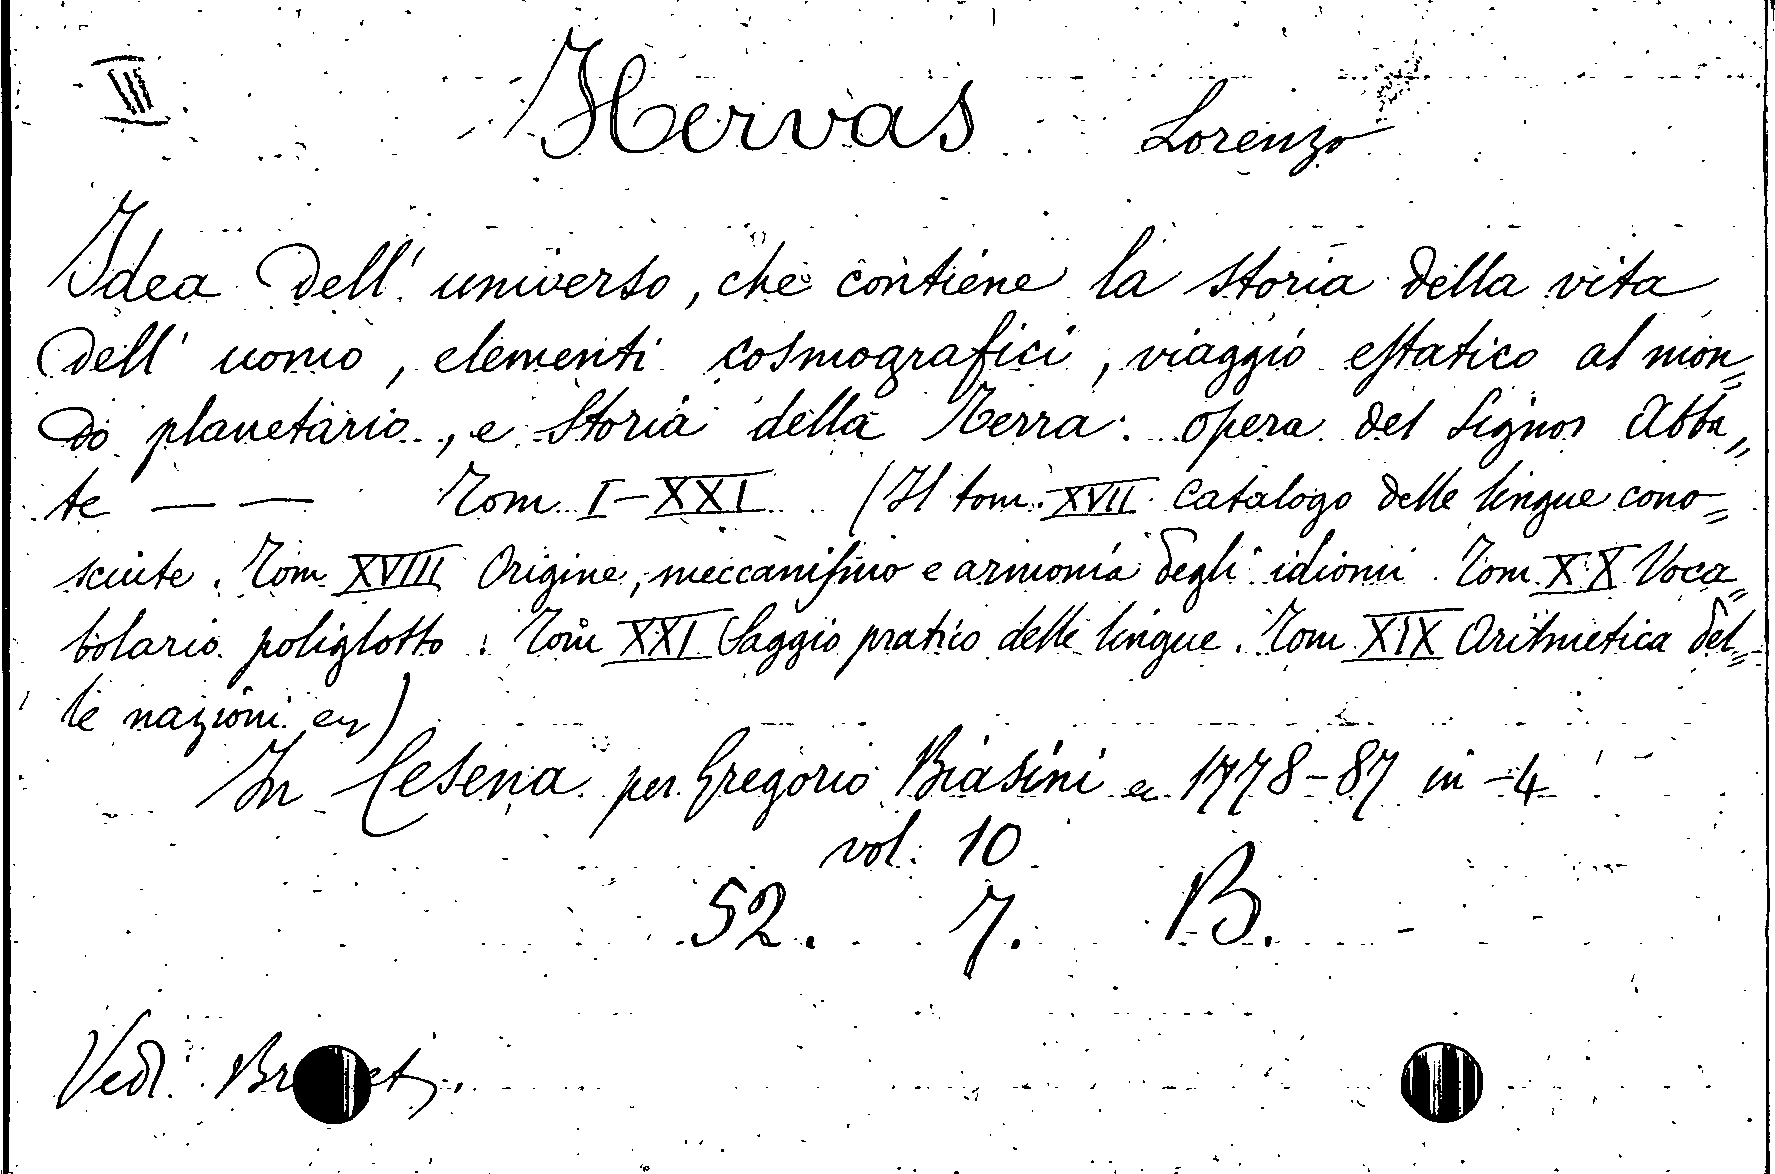 III.
Hervas Lorenzo
Idea dell' universo, che contiene la storia della vita
dell' uomo, elementi cosmografici, viaggio estatico al mon=
do planetario, e storia della Terra: opera del Signor Abba„
te — — Tom. I–XXI (Il tom. XVII Catalogo delle lingue cono=
sciute. Tom XVIII Origine, meccanismo e armonia degli idiomi. Tom XX Voca=
bolario poliglotto: Tom XXI Saggio pratico delle lingue. Tom XIX Aritmetica del=
le nazioni ec)
In Cesena per Gregorio Biasini ec 1778–87 in–4
vol. 10
52. 7. B.
Vedi